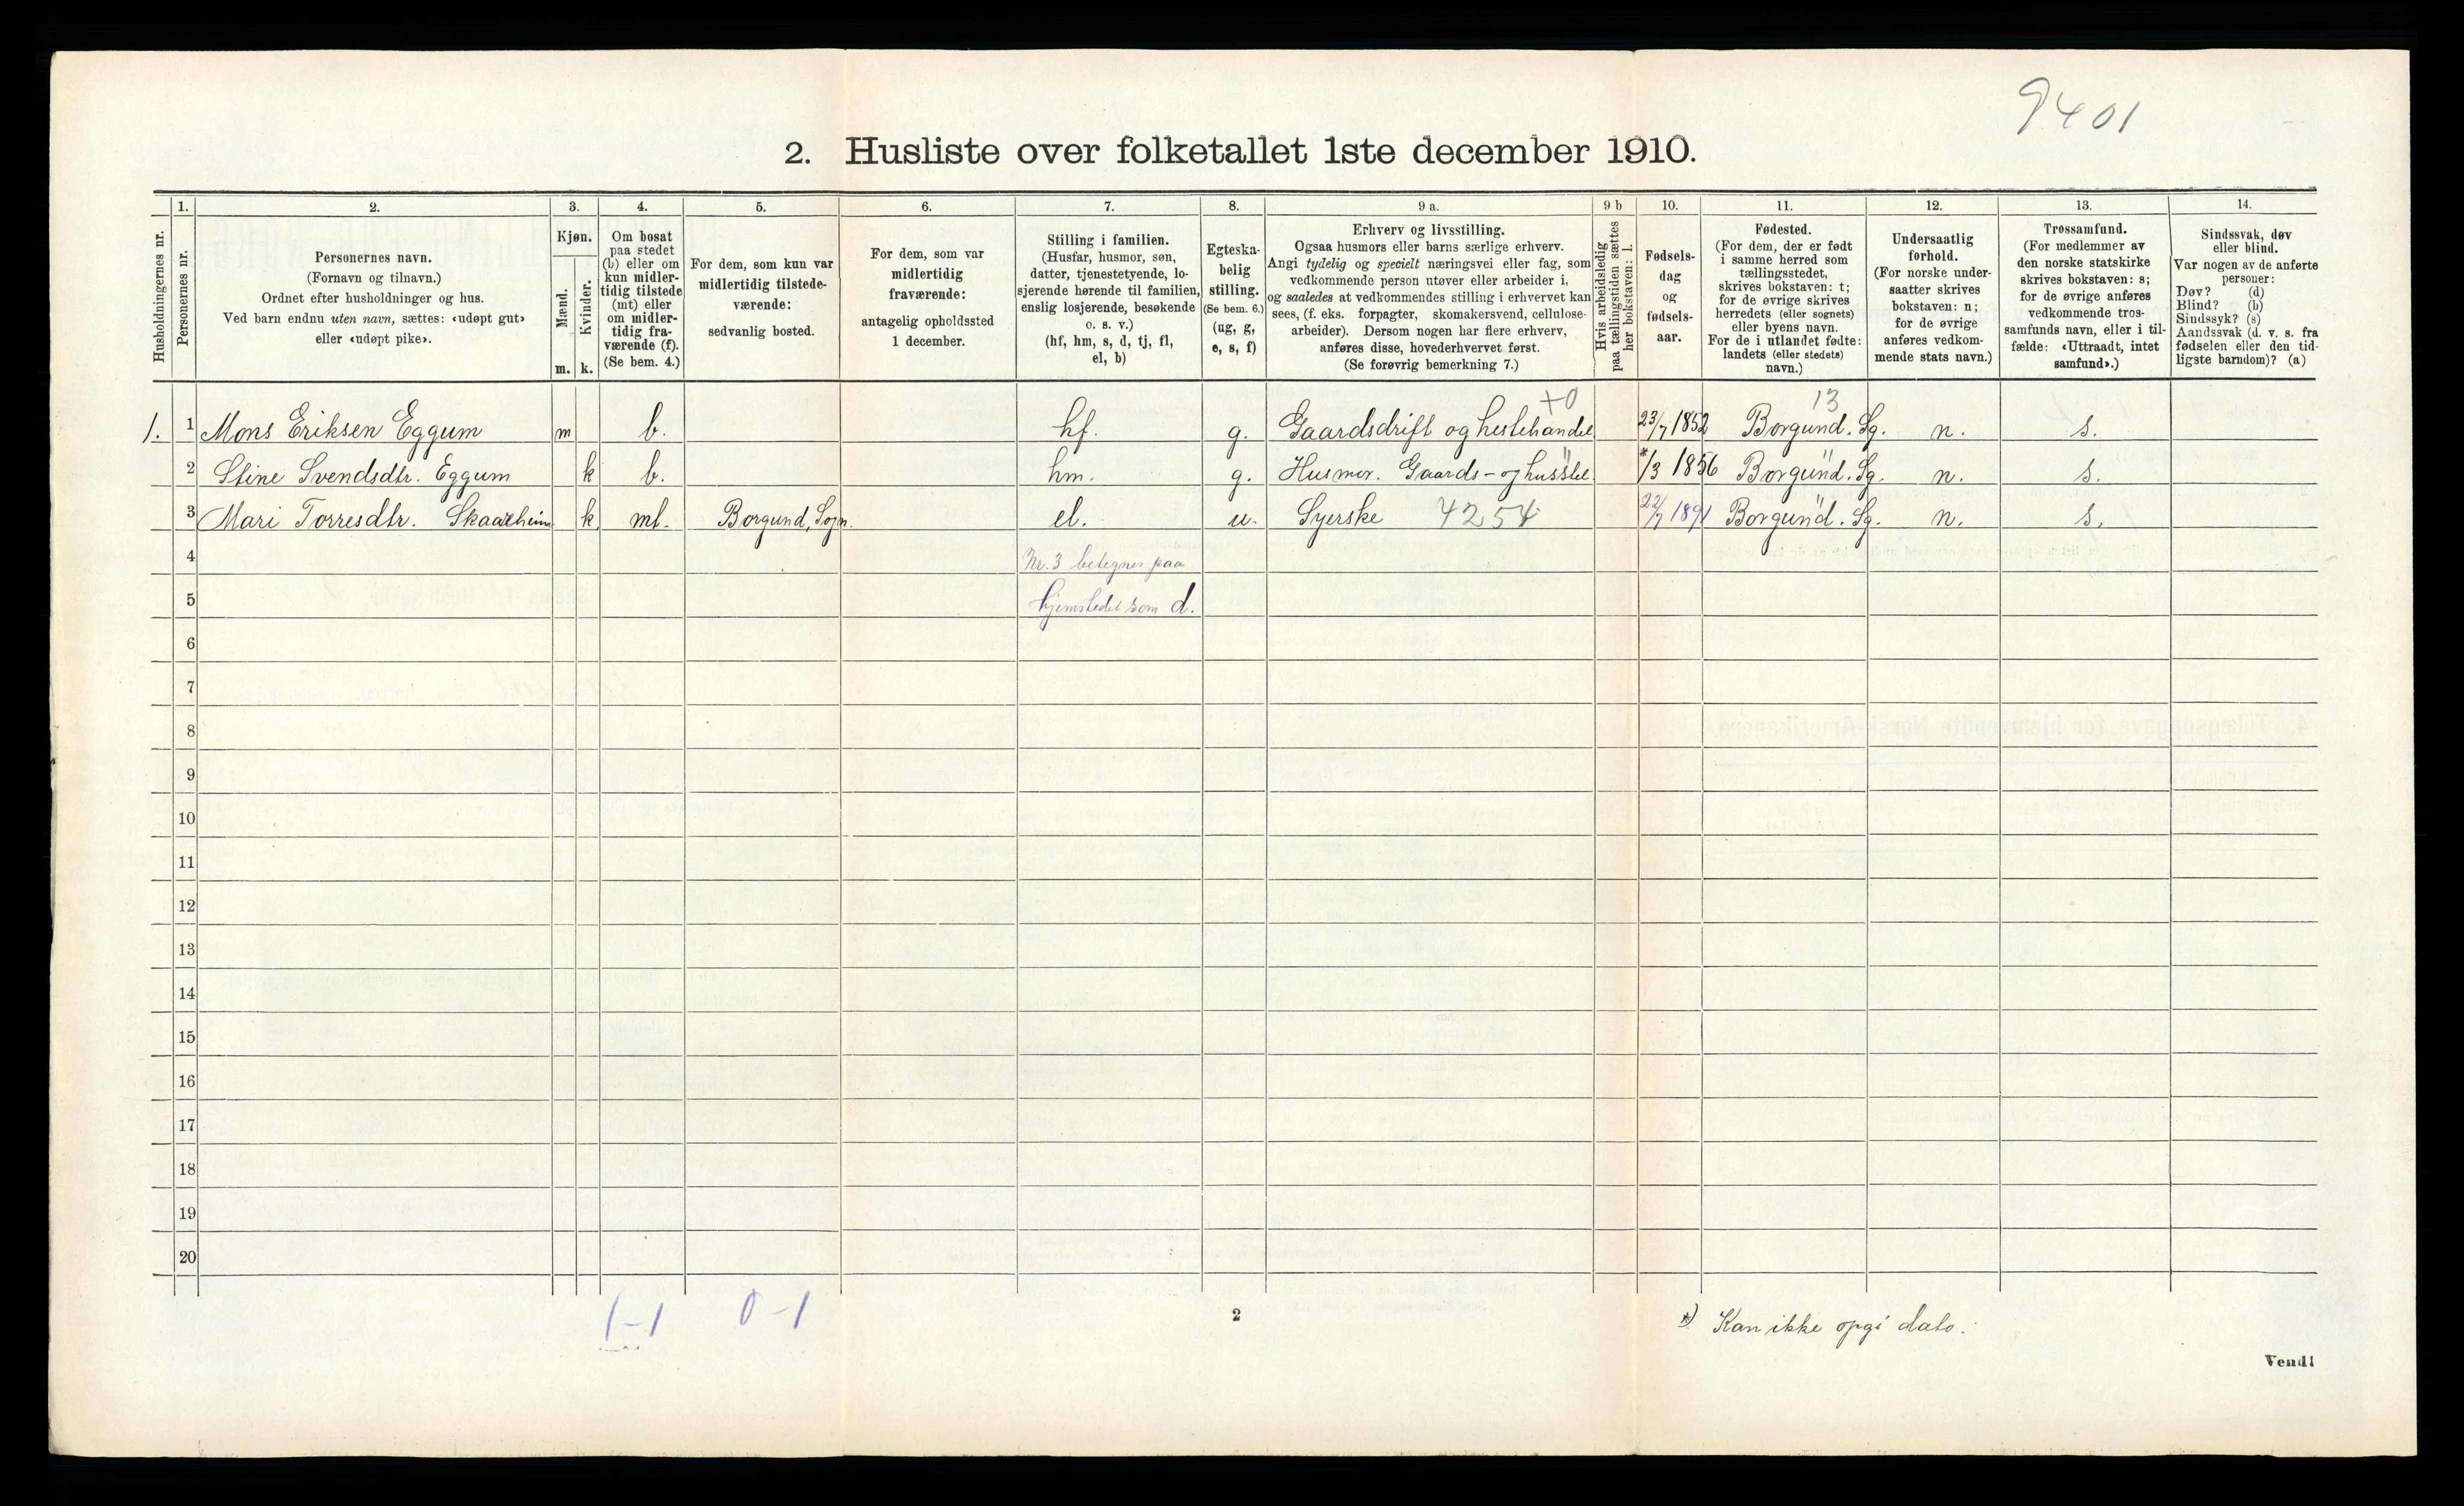 9401
2. Husliste over folketallet 1ste december 1910.
Husholdningernes nr.
1.
Personernes nr.
2.
Personernes navn.
(Fornavn og tilnavn.)
Ordnet efter husholdninger og hus.
Ved barn endnu uten navn, sættes: «udøpt gut»
eller «udøpt pike».
3.
Kjøn.
Mænd.
Kvinder.
m. k.
4.
Om bosat
paa stedet
(b) eller om
kun midler-
tidig tilstede
(mt) eller
om midler-
tidig fra-
værende (f).
(Se bem. 4.)
5.
For dem, som kun var
midlertidig tilstede-
værende:
sedvanlig bosted.
6.
For dem, som var
midlertidig
fraværende:
antagelig opholdssted
1 december.
7.
Stilling i familien.
(Husfar, husmor, søn,
datter, tjenestetyende, lo-
sjerende hørende til familien,
enslig losjerende, besøkende
o. s. v.)
(hf, hm, s, d, tj, fl,
el, b)
8.
Egteska-
belig
stilling.
(Se bem. 6.)
(ug, g,
e, s, f)
9 a.
Erhverv og livsstilling.
Ogsaa husmors eller barns særlige erhverv.
Angi tydelig og specielt næringsvei eller fag, som
vedkommende person utøver eller arbeider i,
og saaledes at vedkommendes stilling i erhvervet kan
sees, (f. eks. forpagter, skomakersvend, cellulose-
arbeider). Dersom nogen har flere erhverv,
anføres disse, hovederhvervet først.
(Se forøvrig bemerkning 7.)
9 b
Hvis arbeidsledig
paa tællingstiden sættes
her bokstaven: l.
10.
Fødsels-
dag
og
fødsels-
aar.
11.
Fødested.
(For dem, der er født
i samme herred som
tællingsstedet,
skrives bokstaven: t;
for de øvrige skrives
herredets (eller sognets)
eller byens navn.
For de i utlandet fødte:
landets (eller stedets)
navn.)
12.
Undersaatlig
forhold.
(For norske under-
saatter skrives
bokstaven: n;
for de øvrige
anføres vedkom-
mende stats navn.)
13.
Trossamfund.
(For medlemmer av
den norske statskirke
skrives bokstaven: s;
for de øvrige anføres
vedkommende tros-
samfunds navn, eller i til-
fælde: «Uttraadt, intet
samfund».)
14.
Sindssvak, døv
eller blind.
Var nogen av de anførte
personer:
Døv? (d)
Blind? (b)
Sindssyk? (s)
Aandssvak (d. v. s. fra
fødselen eller den tid-
ligste barndom)? (a)
+0 13
1. 1 Mons Eriksen Eggum m b. hf. g. Gaardsdrift og hestehandel 23/7 1852 Borgund. Sg. n. s.
2 Stine Svendsdtr. Eggum k b. hm. g. Husmor. Gaards- og husstel */3 1856 Borgund. Sg. n. s.
3 Mari Torresdtr. Skaarheim k mt. Borgund, Sogn. el. u. Syerske 4254 22/7 1891 Borgund. Sg. n. s.
4 Nr. 3 betegnes paa
5 hjemstedet som d.
6
7
8
9
10
11
12
13
14
15
16
17
18
19
20
1-1 0-1
2
*) Kan ikke opgi dato.
Vend!